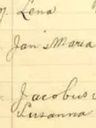 Lena
Jan's Maria
Jacobus
Susanna